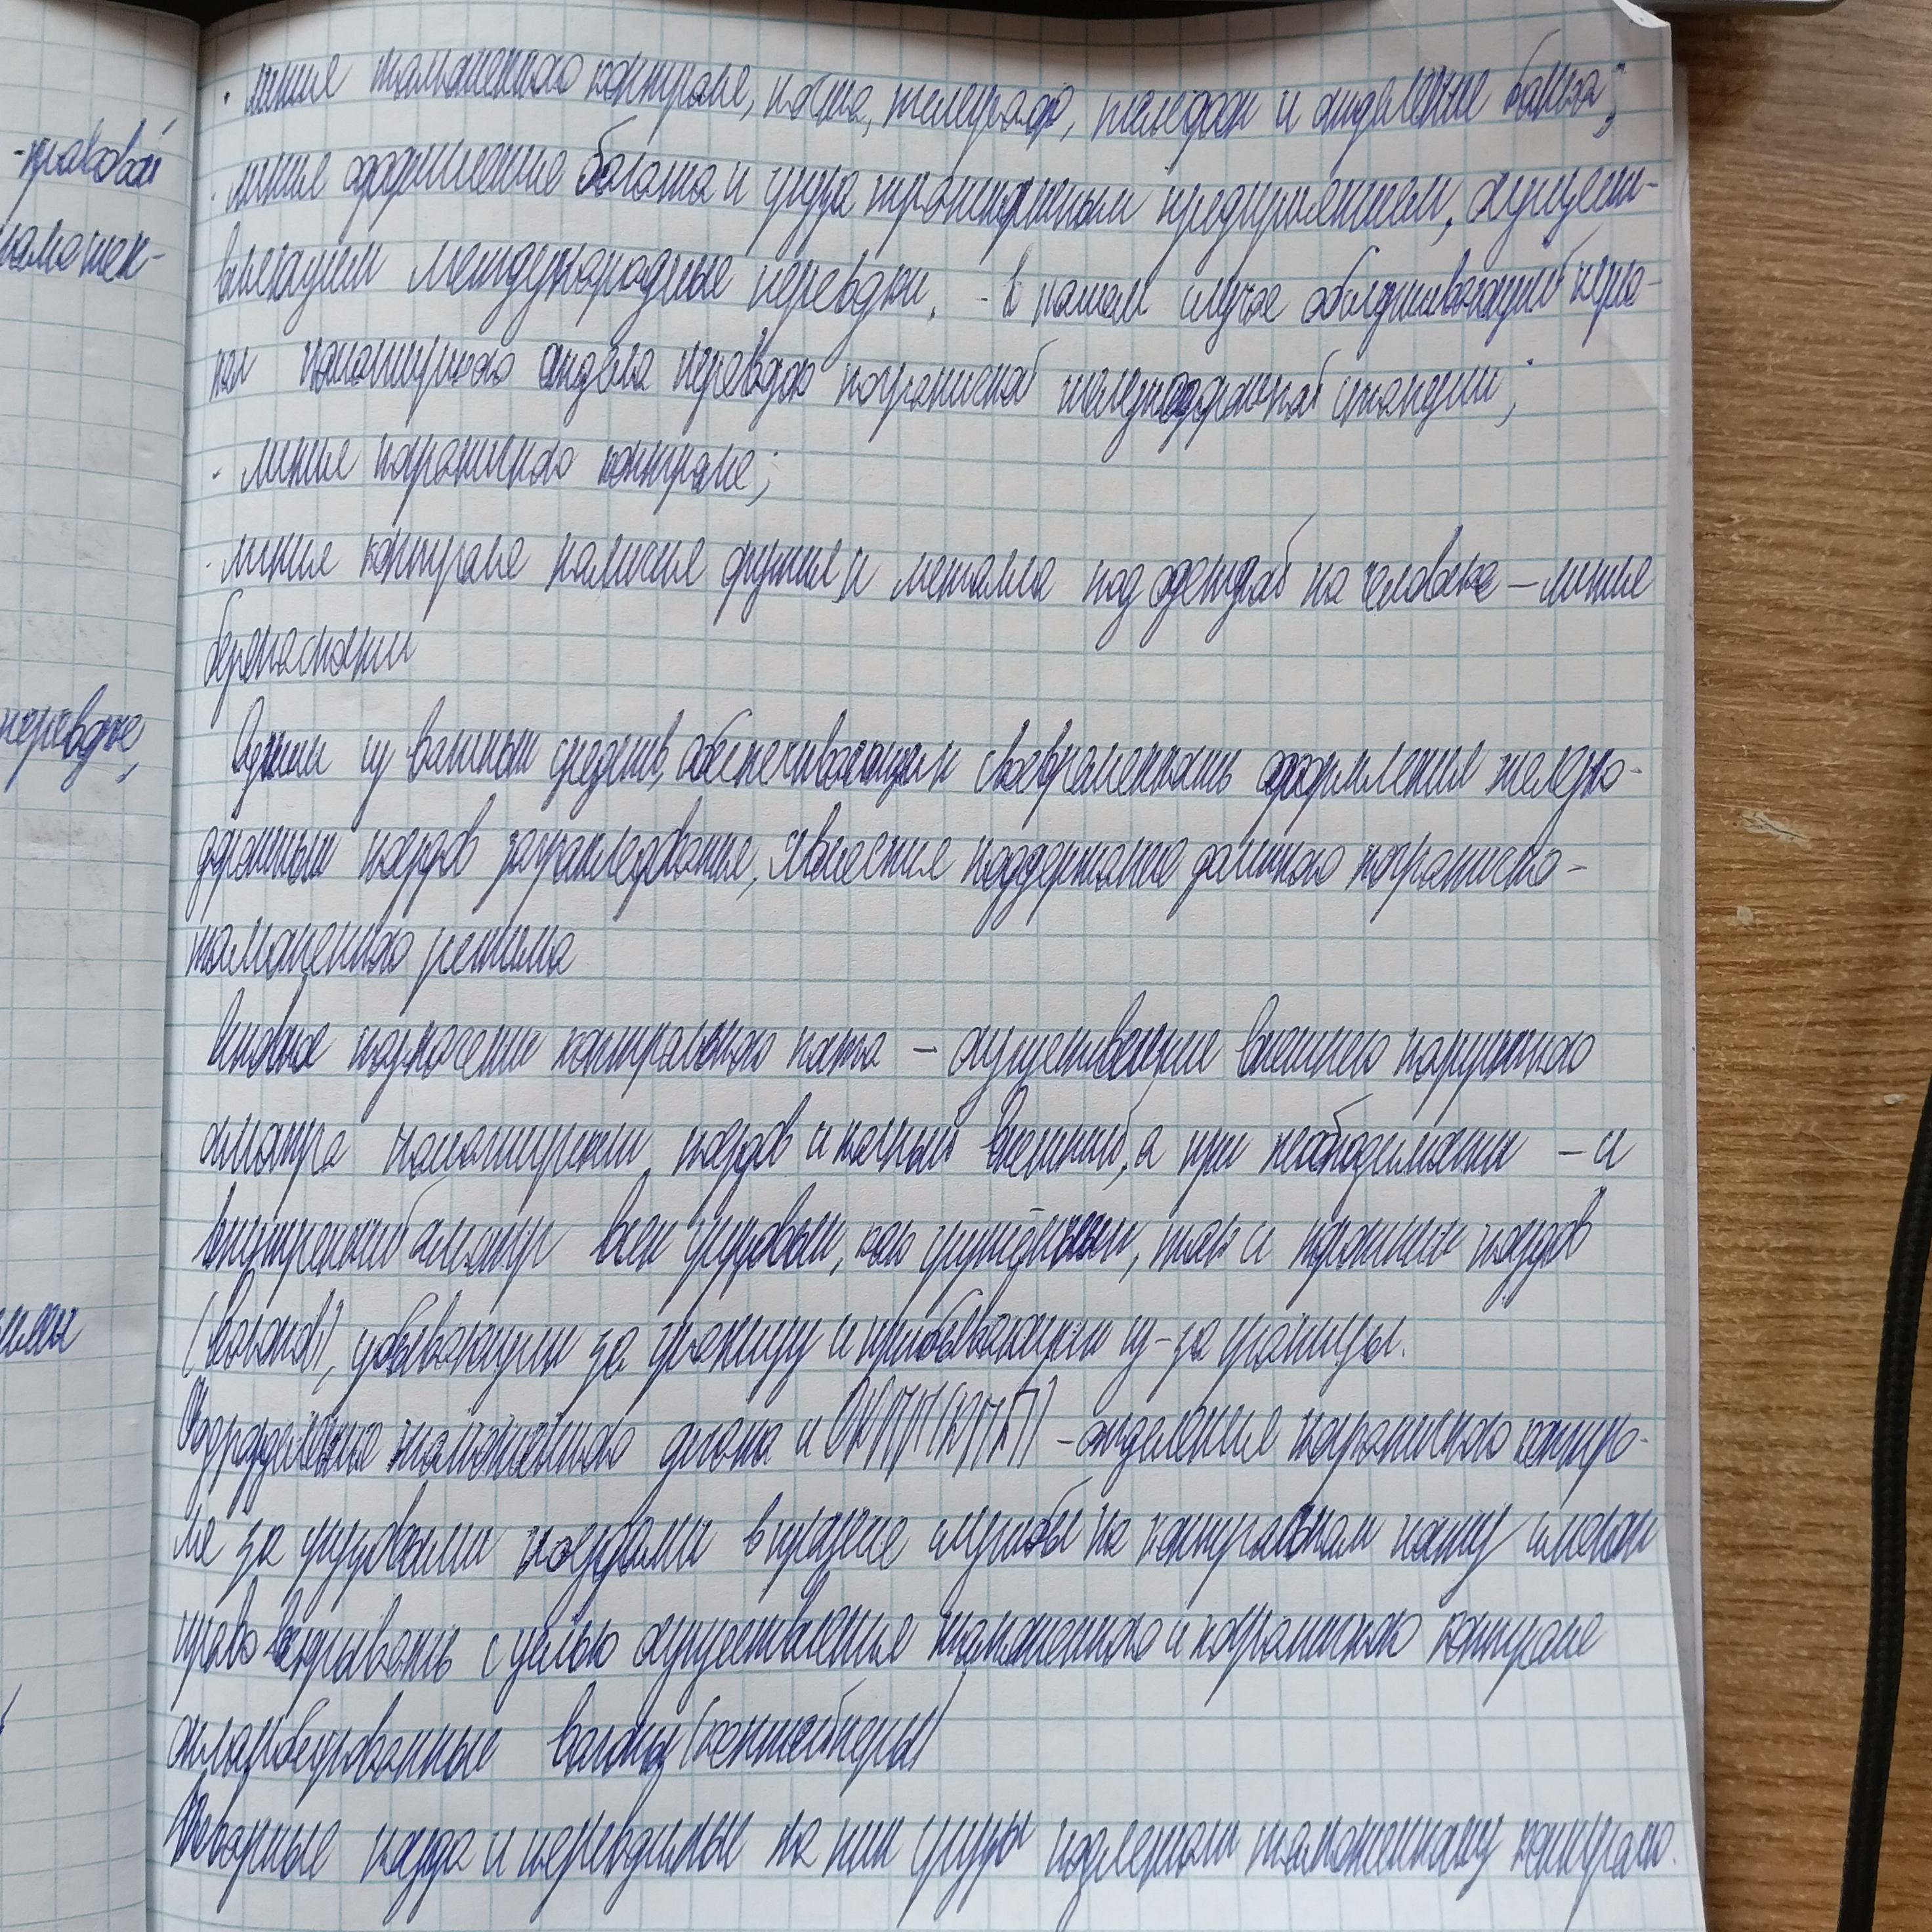 -правовой
таможен-
перевозке,
· линия таможенного контроля, почта, телеграф, телефон и отделение банка;
· линия оформления багажа и груза транспортным предприятием, осущест-
вляющим международные перевозки, - в нашем случае обслуживающий перро-
нал пассажирского отдела перевозок пограничной железнодорожной станции;
- линия пограничного контроля;
· линия контроля наличия оружия и металла под одеждой на человеке – линия
безопасности
Одним из важных средств, обеспечивающих своевременность оформления железно-
дорожных поездов загранследования, является поддержание должного погранично-
таможенного режима
Основное назначение контрольного поста – осуществление внешнего наружного
осмотра пассажирских поездов и полный внешний, а при необходимости – и
внутренний осмотр всех грузовых, как гружёных, так и порожних поездов
(вагонов), убывающих за границу и прибывающих из-за границы.
Подразделения таможенного органа и ОКПП (КПП) - отделения пограничного контро-
ля за грузовыми поездами в процессе службы на контрольном посту имеют
право вскрывать с целью осуществления таможенного и пограничного контроля
опломбированные вагоны (контейнеры)
Товарные поезда и перевозимые на них грузы подлежат таможенному контролю.